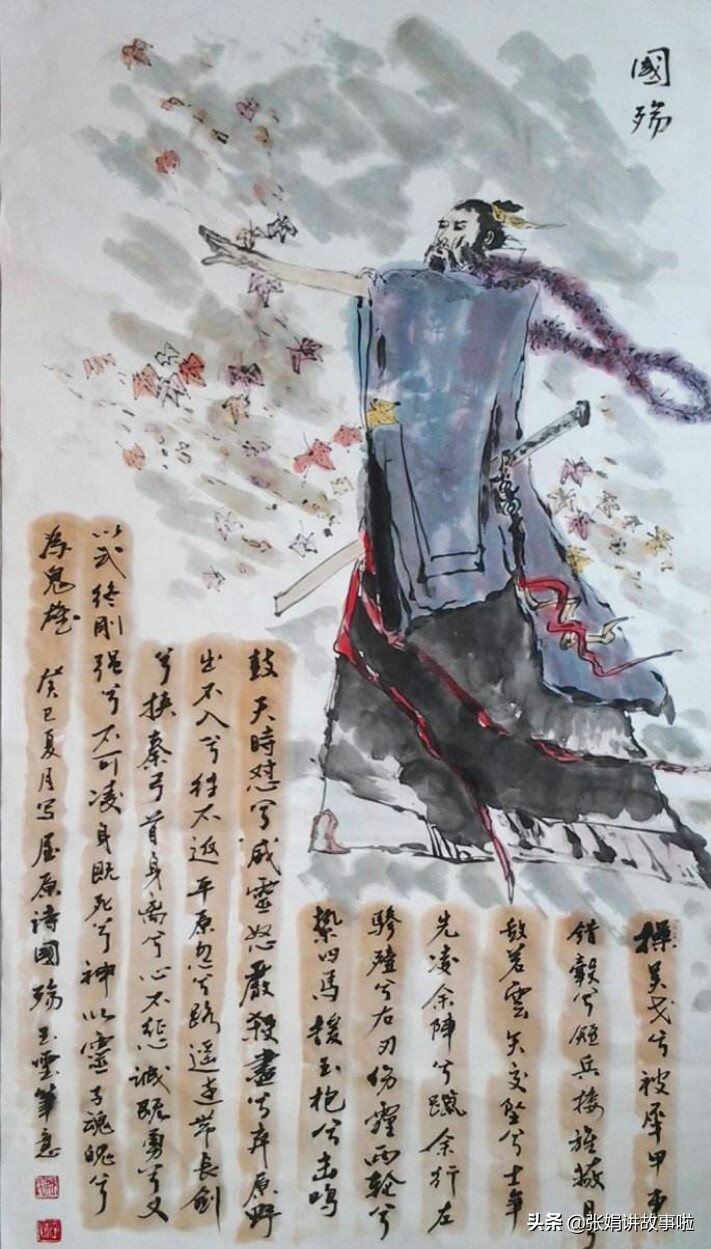 國殤
操吴戈兮被犀甲車
錯轂兮短兵接旌蔽日兮
敌若雲矢交墜兮士争
先凌余陣兮躐余行左
驂殪兮右刃傷霾兩輪兮
縶四馬援玉枹兮击鳴
鼓天時懟兮威靈怒嚴殺盡兮弃原野
出不入兮往不返平原忽兮路遥遠帶長劍
兮挾秦弓首身离兮心不懲誠既勇兮又
以武終剛强兮不可凌身既死兮神以靈子魂魄兮
為鬼雄 癸巳夏月写屈原詩國殤玉雲筆意
头条 @张娟讲故事啦